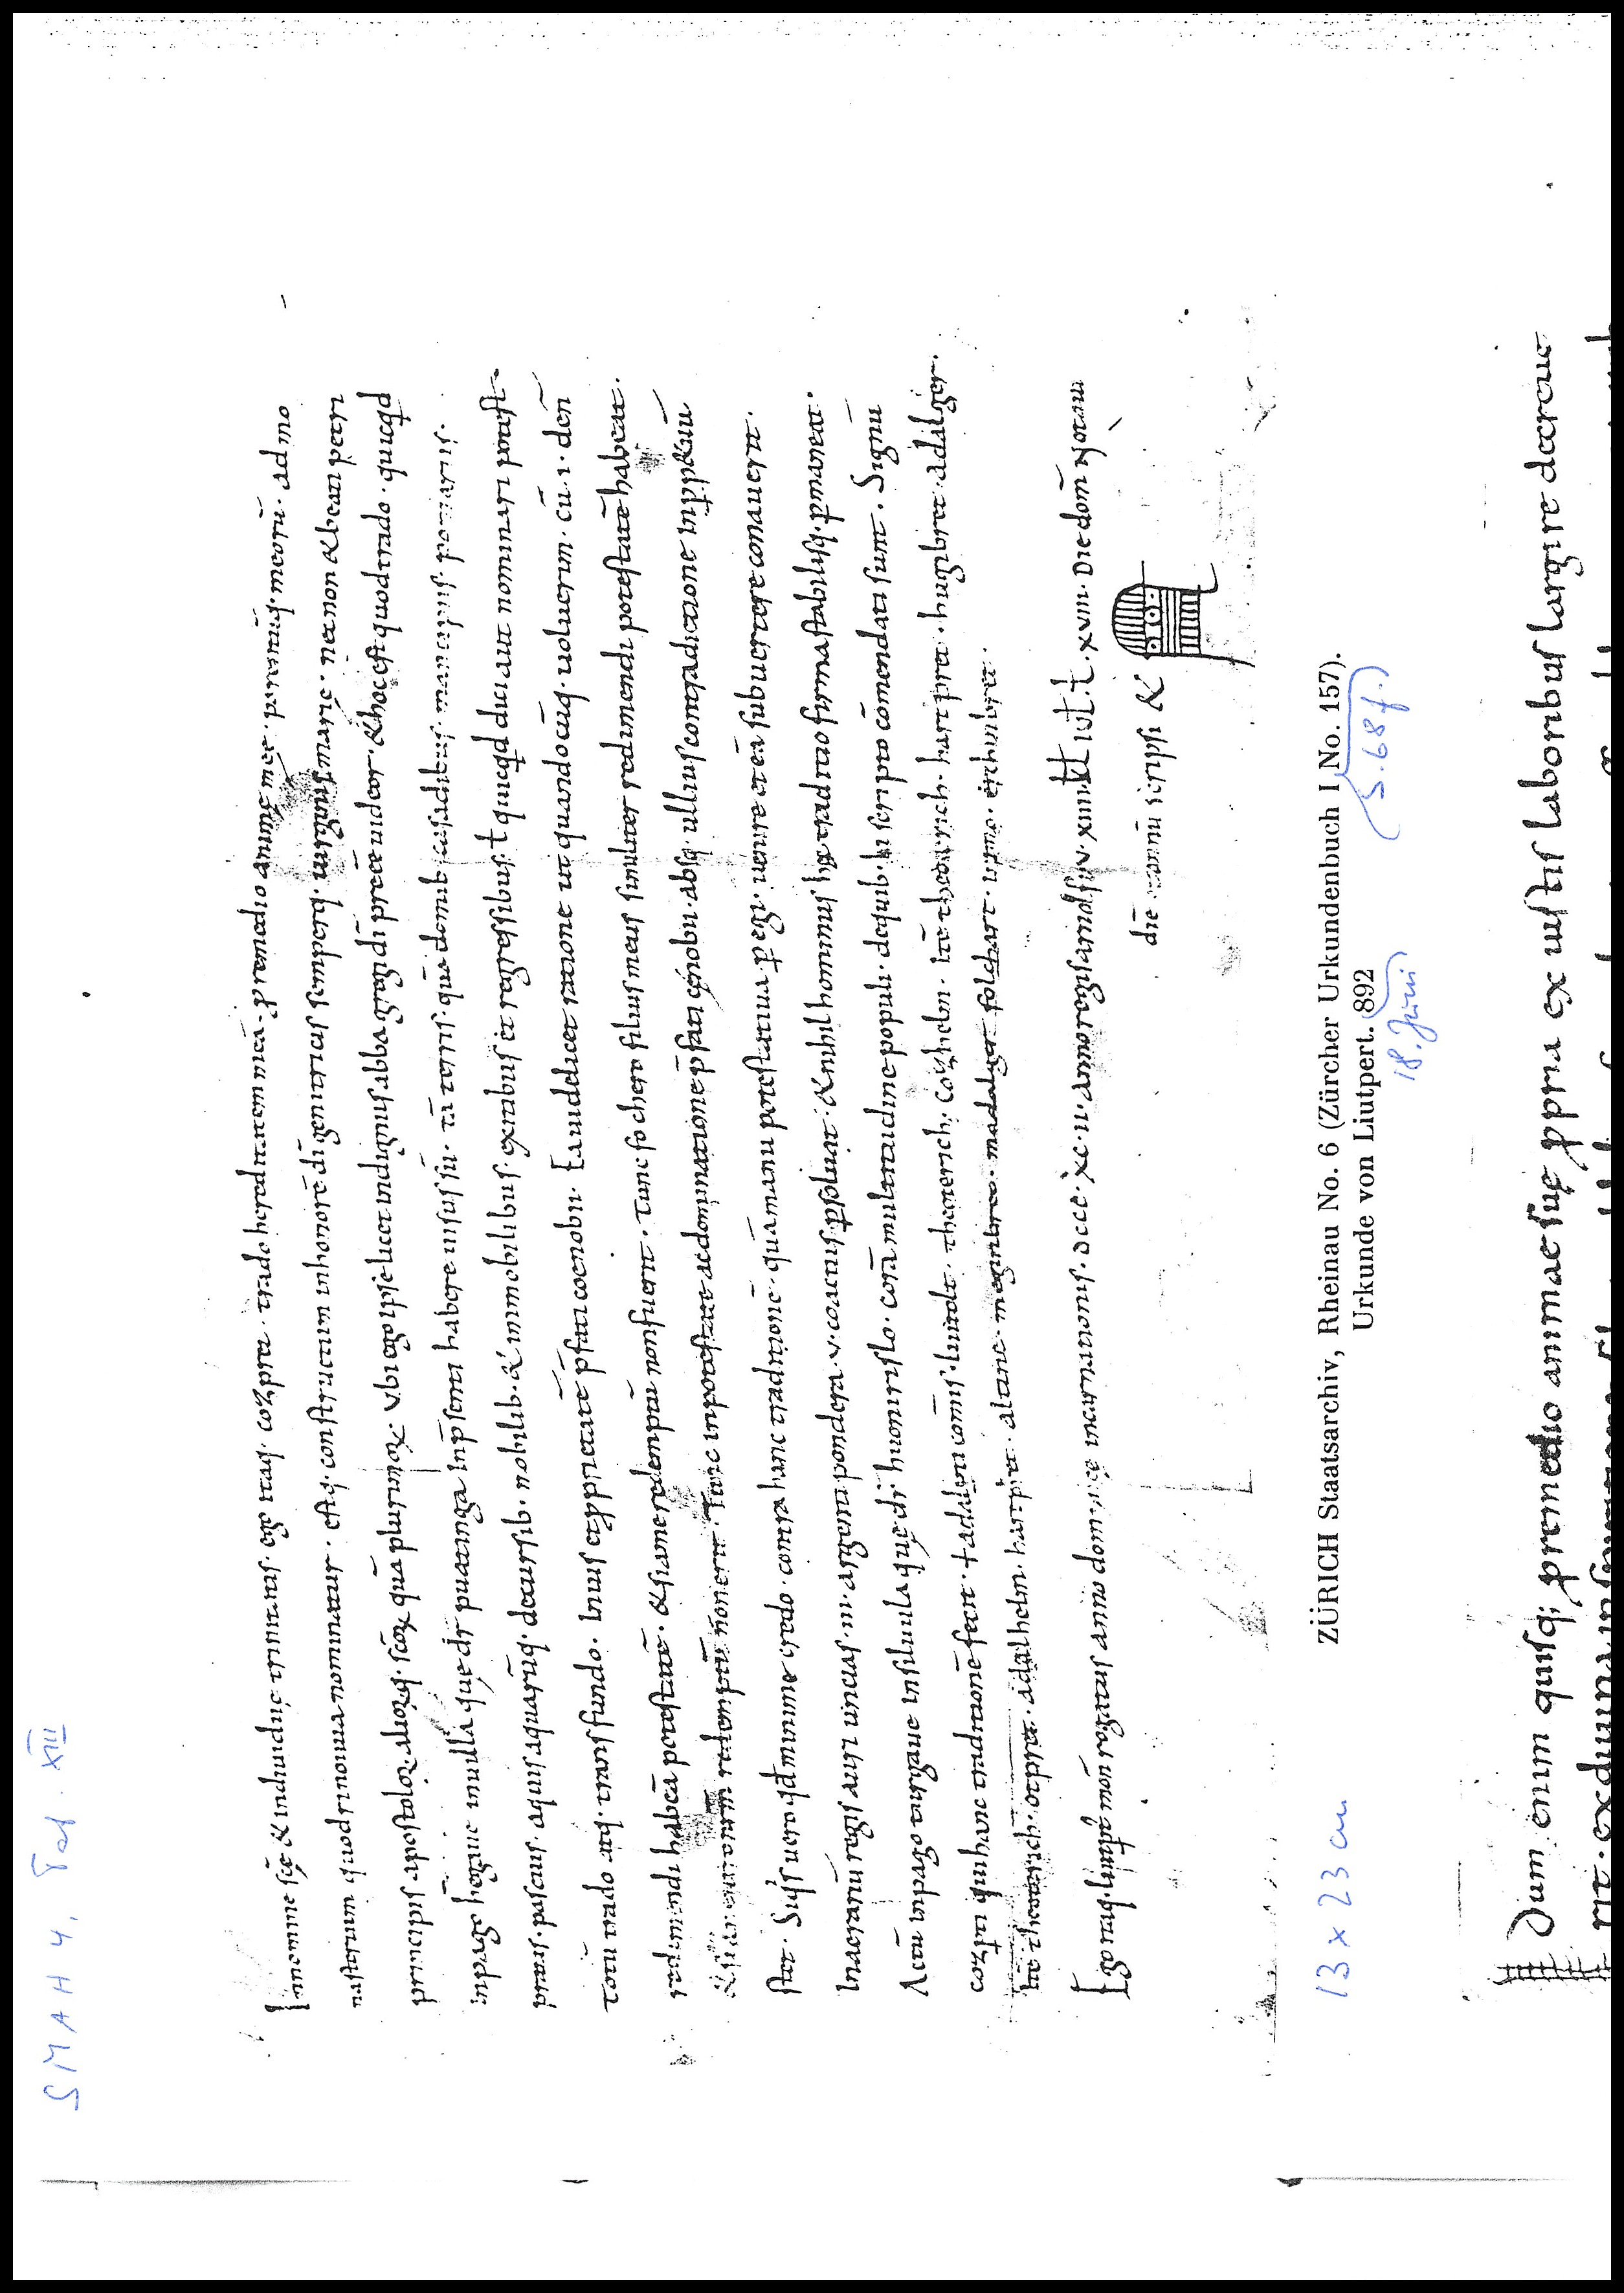 SMAH 4, Taf. XIII
In nomine scę & indiuiduę trinitatis. ego itaq. cozpret. trado hereditatem meā. p remedio animę meę. parentūq. meorū. ad mo
nasterium quod rinouua nominatur. estq. constructum in honorē di genitricis semperq. uirginis marię. nec non & beati petri
principis apostoloꝝ. alioꝝq. scōꝝ quā plurimoꝝ. Vbi ego ipse licet indignus abba gregi di preeē uideor. & hoc est quod trado. quicqd
in pago hegauue in uilla quę dr puatinga in psenti habere uisus sū. tā terris. quā domib. casadibus. mancipiis. pomariis.
pratis. pascuis. aquis aquarūq. decursib. mobilib. & inmobilibus. exitabus et regressibus. ł quicqd dici aut nominari potest.
totū trado atq. transfundo. In ius et pprietatē psati coenobii. Ea uidelicet ratione ut quandocūq. uoluerim. cū .i. den
redimendi habeā potestatē. & si a me redemptū non fuerit. Tunc sochere filius meus similiter redimendi potestatē habeat.
redemptū non erit. Tunc in potestate ac dominatione psati cęnobii. absq. ullius contradictione in ppetuū
stet. Siqis uero qd minime credo. contra hanc traditionē. quā manu potestatiua. p egi. uenire et eā subuertere conauerit.
In aerariū regis auri uncias .iii. argenti pondera .v. coactus psoluat. & nihilhominus hęc traditio firma stabilisq. pmaneat.
Actū in pago turgauue in siluula quę dr huonirslo. corā multitudine populi. de quib. hi scri pro cōmendati sunt. Signū
cozpti qui hanc traditionē fecit. + adalpti comis. liutolt. theoterich. cozhelm. itē theoterich. hartpret. hugibret. adalger.
itē theoterich. otpret. adalhelm. hartpret. altine. meginbret. madalger. folchart. uuno. erchinbret.
Ego itaq. liutpt mon rogatus anno dominicę incarnationis. dccc. xc. ii. anno regis arnolfi .v. xiiii. kł iuł. ł. xviii. Die dom notaui
diē et annū scripsi &
ZÜRICH Staatsarchiv, Rheinau No. 6 (Zürcher Urkundenbuch I No. 157).
Urkunde von Liutpert. 892
(S. 68 f.)
18. Juni
13 x 23 cm
Dum enim quisq; p remedio animae suę ppria ex iustis laboribus largire decreue